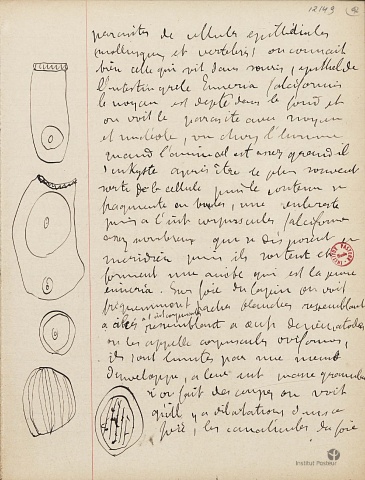 12149
92
parasites de cellules epithéliales
mollusques et vertebrés, on connait
bien celle qui vit dans souris, epithel de
l'intestin grele Eimeria falciformis
le noyau est dans le fond et
on voit le parasite avec noyau
et nucleole, vu chez l'homme
quand l'animal est assez grand il
s'enkyste après être le plus souvent
sorti de la cellule puis le contenu se
fragmente en boules, une
puis a l'état corpuscules falciformes
assez nombreux qui se disposent en
meridien puis ils sortent et
forment une amibe qui est la jeune
eimeria. Sur foie du lapin on voit
frequemment taches blanches ressemblant
a ressemblant a œufs de nematodes
on les appelle corpuscules oviformes,
ils sont limités par une
d'enveloppe, a leur int masse granuleuse
si on fait des coupes on voit
qu'il y a dilatations dans ce
foie, les canalicules du foie
INSTITUT PASTEUR
Institut Pasteur